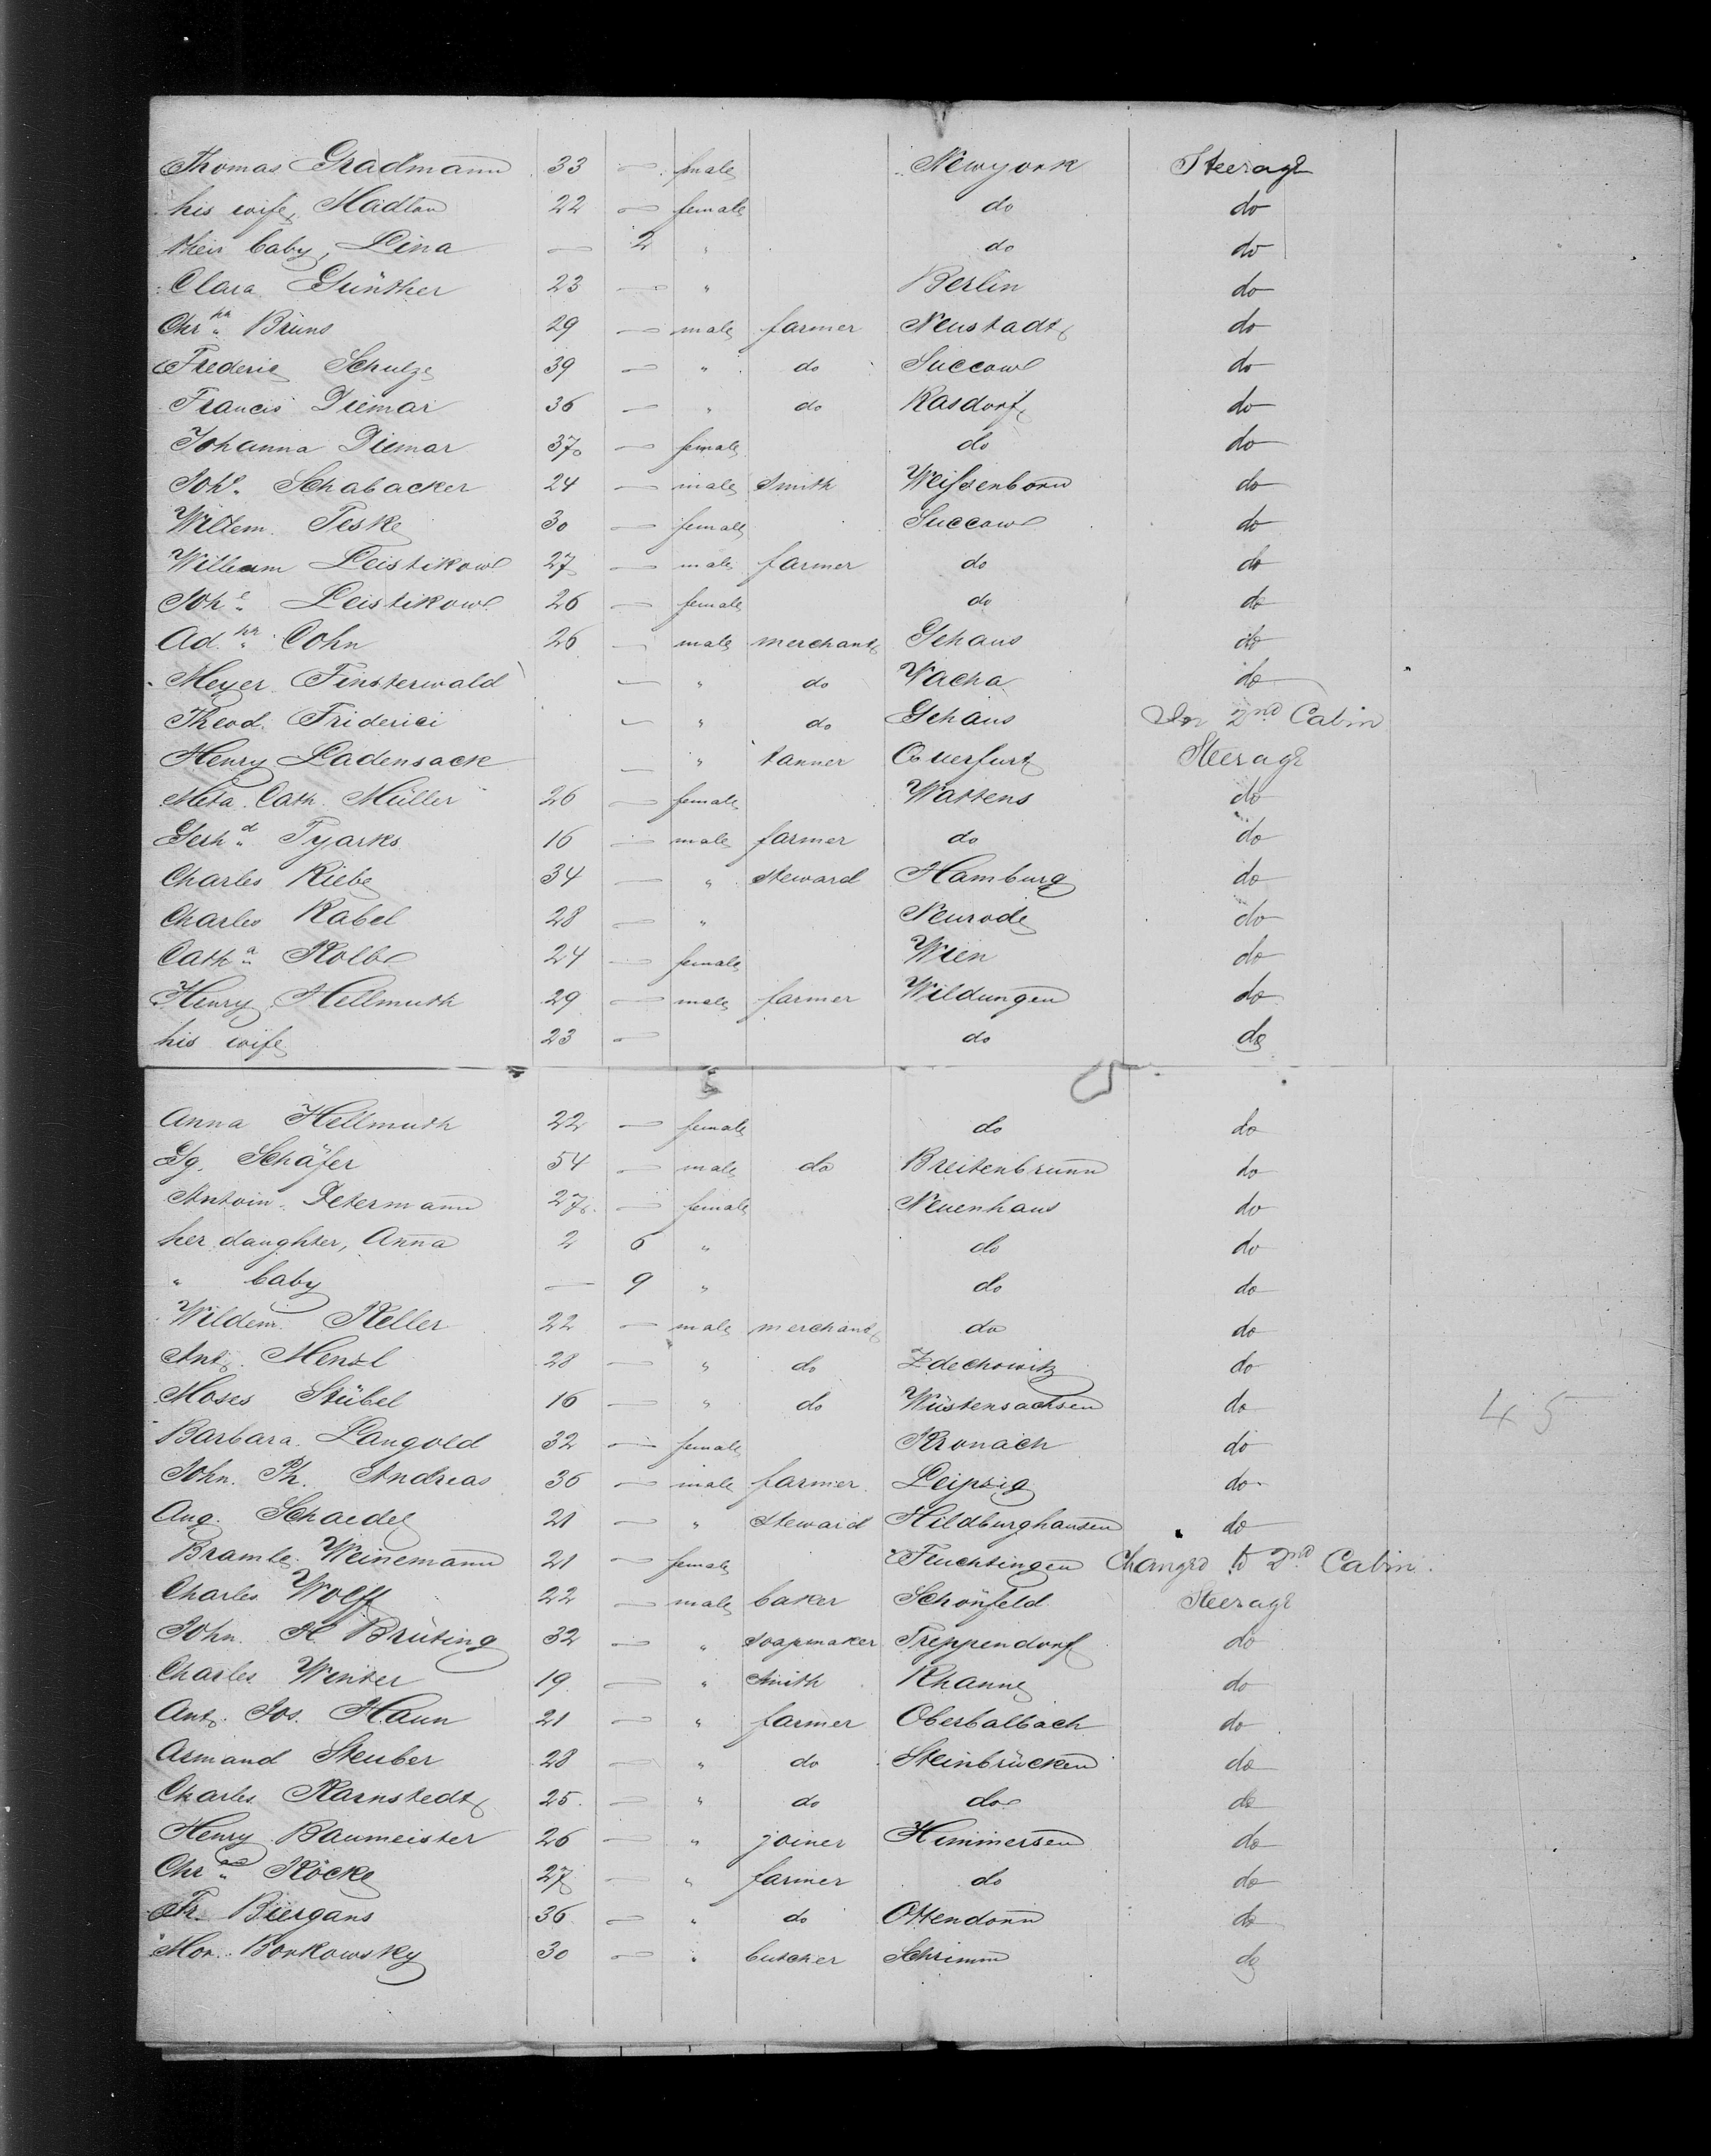 Thomas Gradmann 33 — male Newyork Steerage
his wife, Madlon 22 — female do do
their baby, Lina — 2 " do do
Clara Günther 23 — " Berlin do
Chr. Bruns 29 — male farmer Neustadt do
Frederic Schulze 39 — " do Succow do
Francis Diemar 36 — " do Rasdorf do
Johanna Diemar 37 — female do do
Joh. Schabacker 24 — male Smith Weissenborn do
Willem. Teske 30 — female Succow do
William Leistikow 27 — male farmer do do
Joh. Leistikow 26 — female do do
Ad. Cohn 26 — male merchant Gehaus do
Meyer Finsterwald — " do Vacha do
Theod. Friderici — " do Gehaus In 2nd Cabin
Henry Ladensack — " tanner Querfurt Steerage
Meta Cath. Müller 26 — female Wattens do
Gerhd Tyarks 16 — male farmer do do
Charles Riebe 34 — " steward Hamburg do
Charles Rabel 28 — " Neurode do
Catha Kolb 24 — female Wien do
Henry Hellmuth 29 — male farmer Wildungen do
his wife 23 — do do
5
Anna Hellmuth 22 — female do do
Gg. Schäfer 54 — male do Breitenbrunn do
Antoin. Determann 27 — female Neuenhaus do
her daughter, Anna 2 6 " do do
" baby — 9 " do do
Wildem. Keller 22 — male merchant do do
Ant. Menzl 28 — " do Zdechowitz do
Moses Stübel 16 — " do Wüstensachsen do
45
Barbara Langold 32 — female Kronach do
John. Ph. Andreas 36 — male farmer Leipzig do
Aug. Schaedel 21 — " steward Hildburghausen do
Bramle. Weinemann 21 — female Feuchtingen Changed to 2nd Cabin.
Charles Wolff 22 — male baker Schönfeld Steerage
John. H. Brüting 32 — " soapmaker Treppendorf do
Charles Winter 19 — " smith Rhanne do
Ant. Jos. Haun 21 — " farmer Oberbalbach do
Armand Steuber 28 — " do Steinbrücken do
Charles Karnstedt 25 — " do do do
Henry Baumeister 26 — " joiner Himmersen do
Chr. Köcke 27 — " farmer do do
Fr. Biergans 36 — " do Ottendorn do
Mor. Borkowsky 30 — " butcher Schrimm do